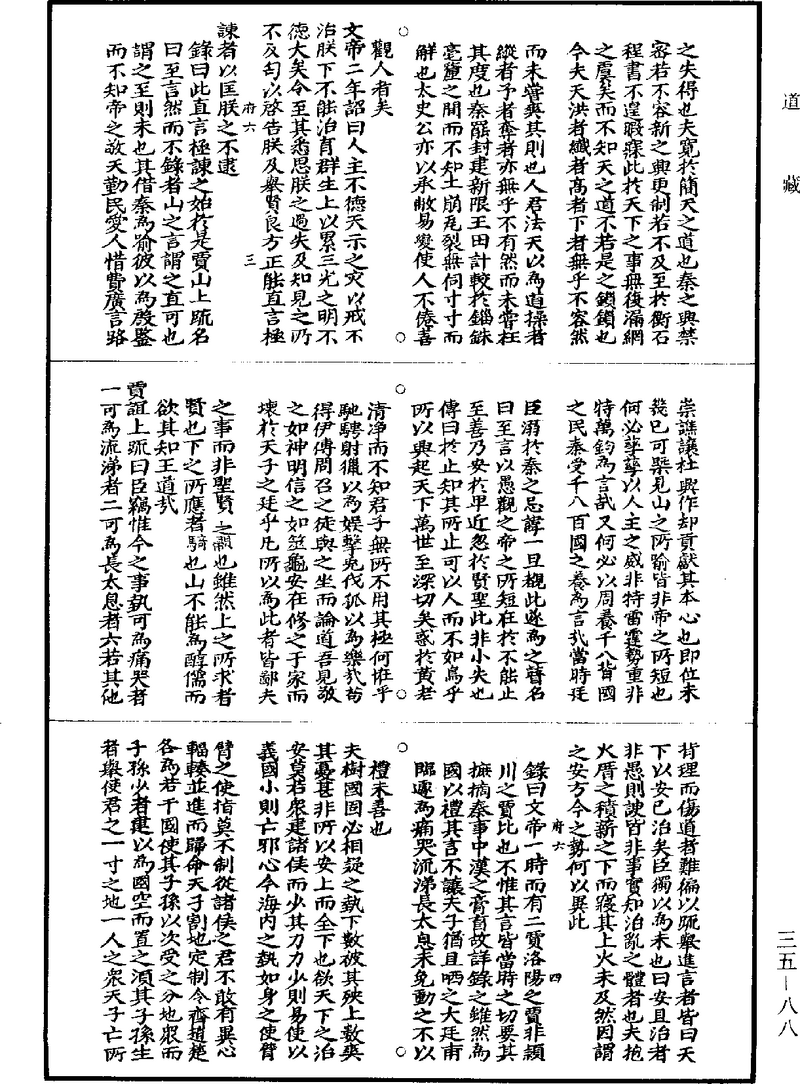 道藏
之失得也夫寛於簡天之道也秦之與禁
容若不容新之興更制若不及至於衡石
程書不遑暇寐此於天下之事無復漏網
之虞矣而不知天之道不若是之鎖鎖也
今夫天洪者纖者高者下者無乎不容然
而未嘗與其則也人君法天以為道操者
縱者予者奪者亦無乎不有然而未嘗枉
其度也秦罷封建新限王田計較於錙銖
毫釐之間而不知土崩瓦裂無何寸寸而
解也太史公亦以承敝易變使人不倦善
觀人者矣
文帝二年詔曰人主不德天示之災以戒不
治朕下不能治育群生上以累三光之明不
德大矣令至其悉思朕之過失及知見之所
不及匄以啓告朕及舉賢良方正能直言極
府六 三
諫者以匡朕之不逮
錄曰此直言極諫之始於是賈山上疏名
曰至言然而不錄者山之言謂之直可也
謂之至則未也其借秦為喻彼以為殷鑒
而不知帝之敬天勤民愛人惜費廣言路
崇謙讓杜興作却貢獻其本心也即位未
幾已可槩見山之所喻皆非帝之所短也
何必孳孳以人主之威非特雷霆勢重非
特萬鈞為言哉又何必以周養千八百國
之民秦受千八百國之養為言哉當時廷
臣溺於秦之忌諱一旦覩此遂為之著名
曰至言以愚觀之帝之所短在於不能止
至善乃安於卑近忽於賢聖此非小失也
傳曰於止知其所止可以人而不如鳥乎
所以興起天下萬世至深切矣惑於黃老
清净而不知君子無所不用其極何惟乎
馳騁射獵以為娱擊兎伐狐以為樂哉苟
得伊傅周召之徒與之坐而論道吾見敬
之如神明信之如筮龜安在修之于家而
壞於天子之廷乎凡所以為此者皆鄙夫
之事而非聖賢之訓也雖然上之所求者
賢也下之所應者騎也山不能為醇儒而
欲其知王道哉
賈誼上疏曰臣竊惟今之事執可為痛哭者
一可為流涕者二可為長太息者六若其他
背理而傷道者難徧以疏舉進言者皆曰天
下以安已治矣臣獨以為未也曰安且治者
非愚則諛皆非事實知治亂之體者也夫抱
火厝之積薪之下而寢其上火未及然因謂
之安方今之勢何以異此
府六 四
錄曰文帝一時而有二賈洛陽之賈非潁
川之賈比也不惟其言皆當時之切要其
摭摘秦事中漢之膏肓故詳錄之雖然為
國以禮其言不讓夫子猶且哂之大廷甫
臨遽為痛哭流涕長太息未免動之不以
禮未善也
夫樹國固必相疑之執下數被其殃上數爽
其憂甚非所以安上而全下也欲天下之治
安莫若衆建諸侯而少其力力少則易使以
義國小則亡邪心令海内之執如身之使臂
臂之使指莫不制從諸侯之君不敢有異心
輻輳並進而歸命天子割地定制令齊趙楚
各為若干國使其子孫以次受之分地衆而
子孫少者建以為國空而置之須其子孫生
者舉使君之一寸之地一人之衆天子亡所
三五－八八